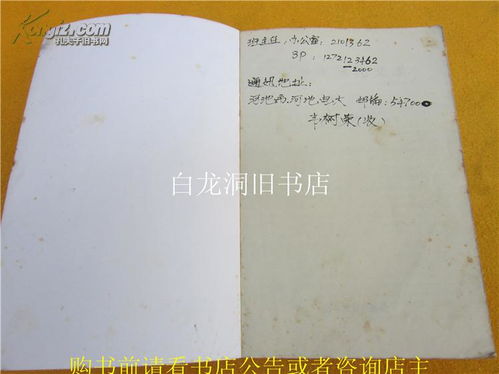 Kongfz.com
孔夫子旧书网
班主任,办公室:2101362
BP:1272123462
—2000
通讯地址:
河池西,河池电大 邮编:547000
韦树荣(收)
白龙洞旧书店
购书前请看书店公告或者咨询店主